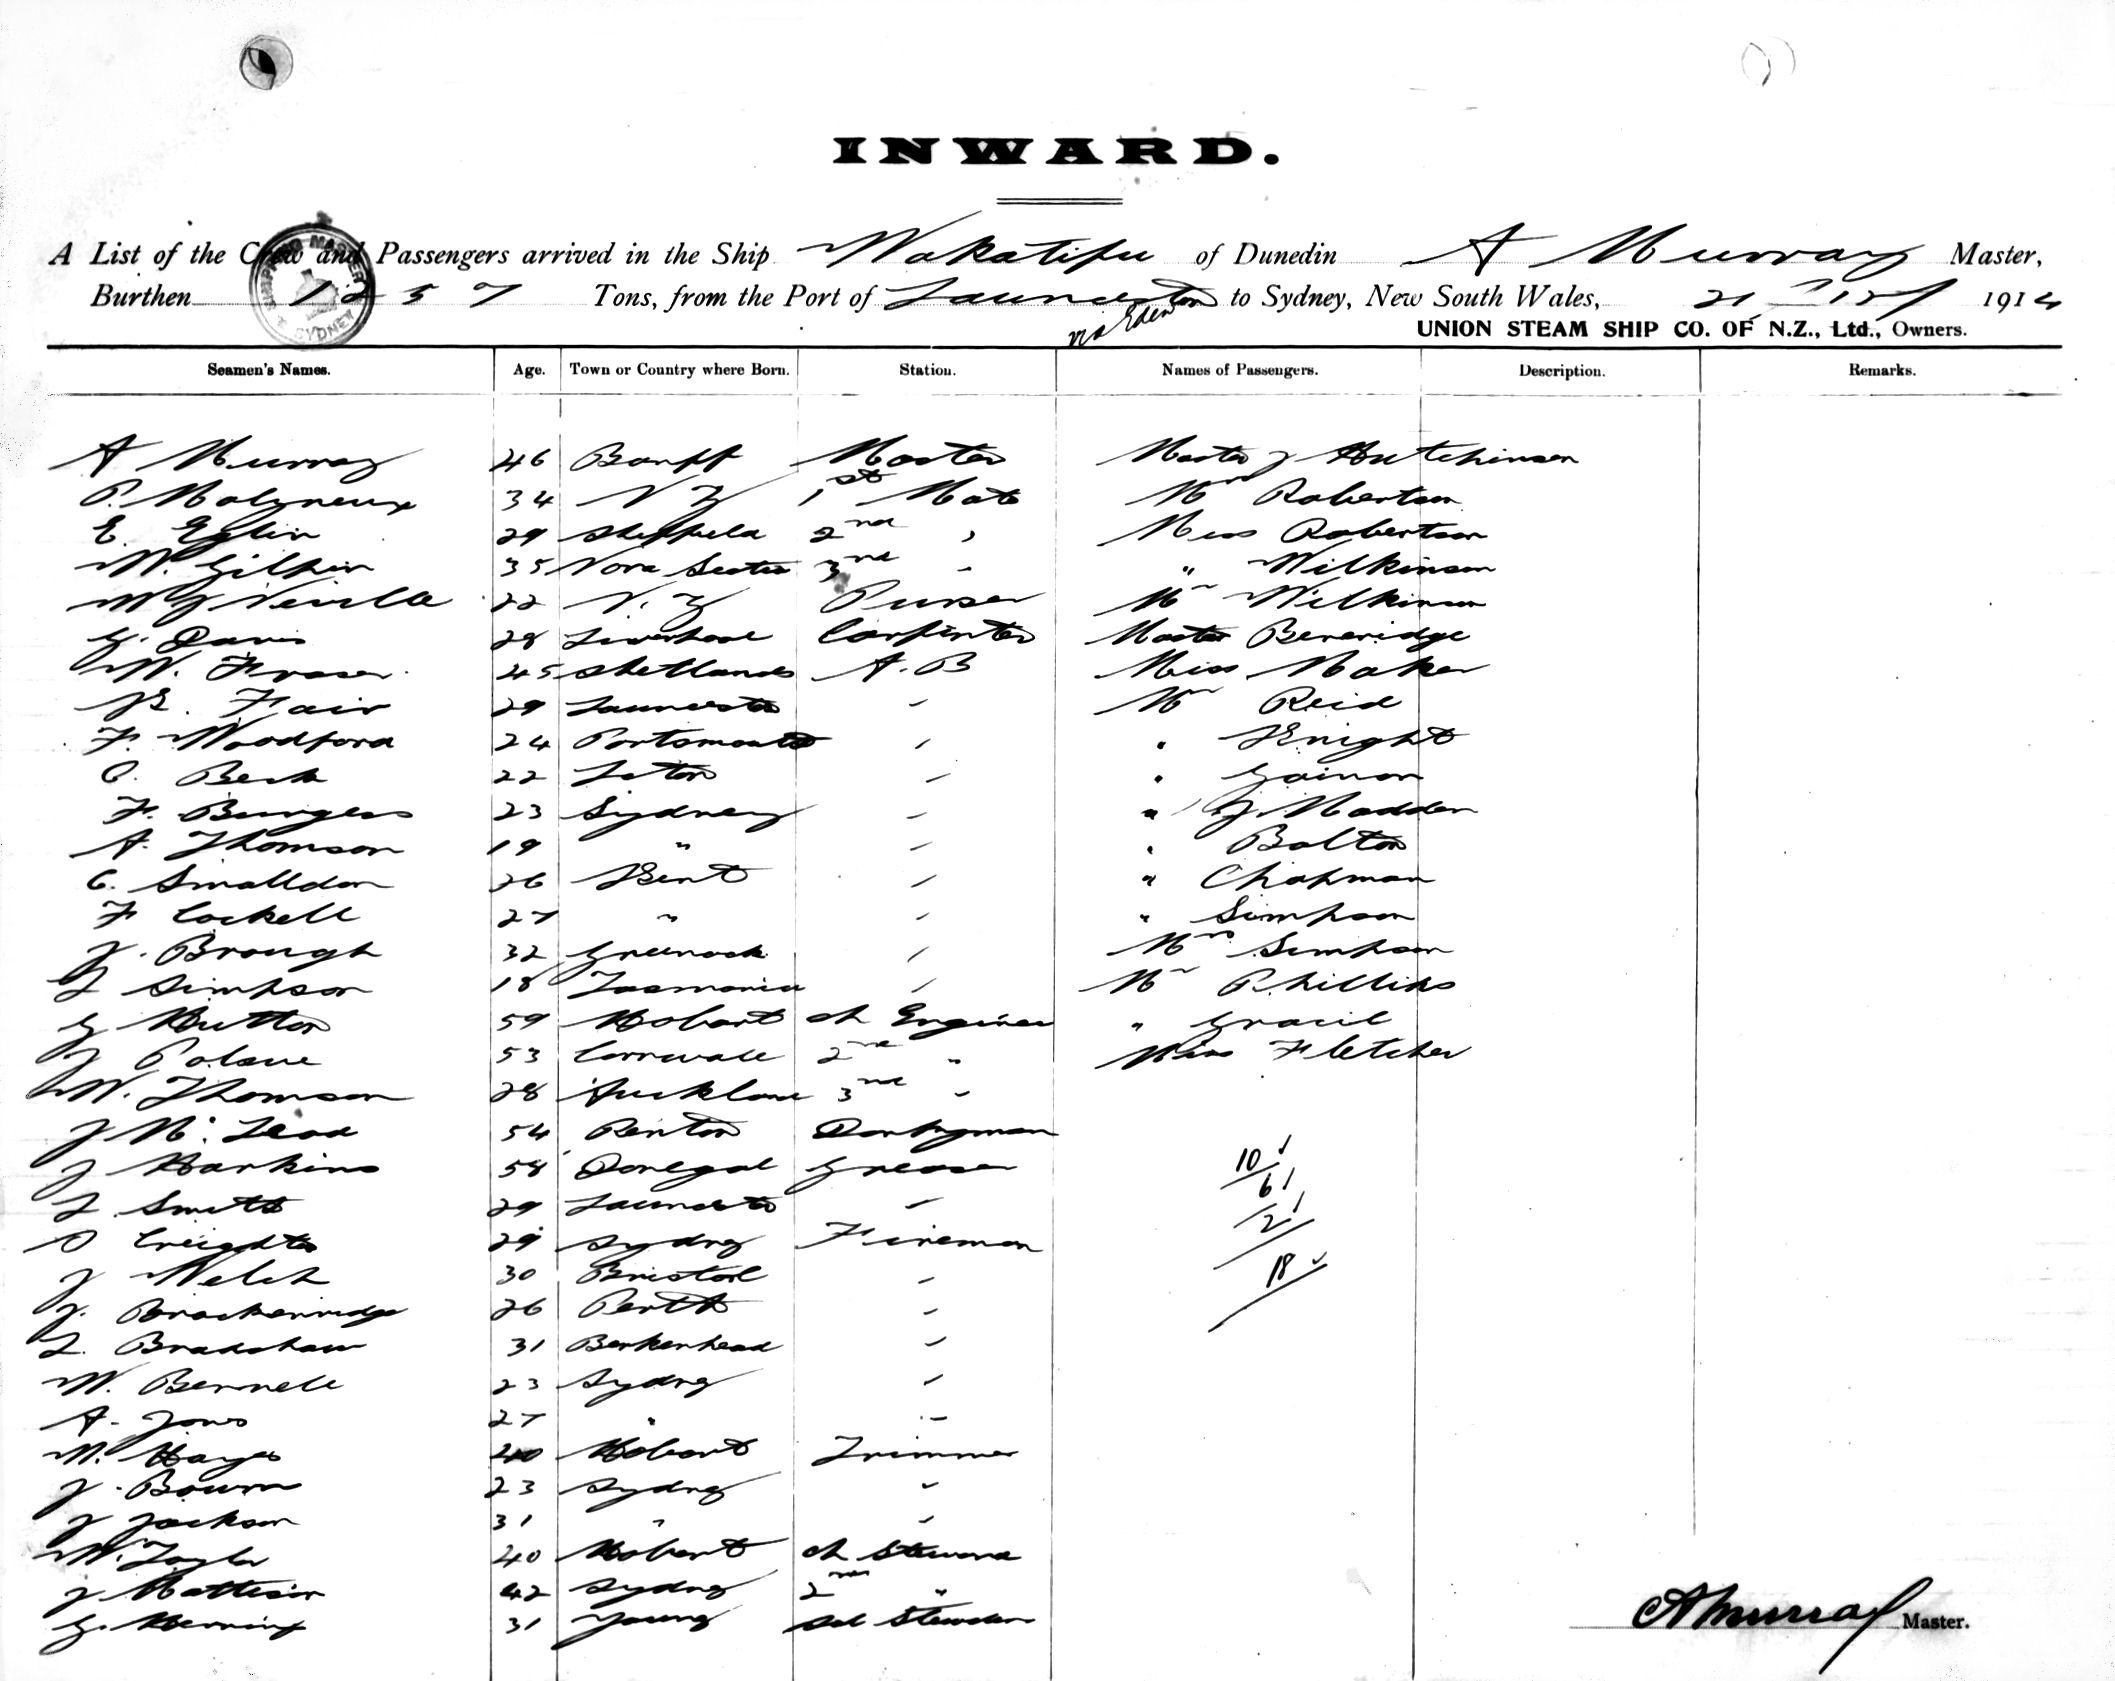 INWARD.
A List of the Crew and Passengers arrived in the Ship Wakatipu of Dunedin A Murray Master,
Burthen 1257 Tons, from the Port of Launceston to Sydney, New South Wales, 1914
via Eden
UNION STEAM SHIP CO. OF N.Z., Ltd., Owners.
SHIPPING MASTER SYDNEY
Seamen's Names. Age. Town or Country where Born. Station. Names of Passengers. Description. Remarks.
A Murray 46 Banff Master Master J Hutchinson
P. Molyneux 34 N Z 1st Mate Mr Robertson
E. Eglin 29 Sheffield 2nd " Miss Robertson
W. Gilpin 35 Nova Scotia 3rd " " Wilkinson
W J Neville 22 N. Z Purser Mr Wilkinson
G. Davis 28 Liverpool Carpenter Master Beveridge
W. Fraser 45 Shetlands A. B Miss Maker
K. Fair 29 Launceston " Mr Reid
F. Woodford 24 Portsmouth " " Knight
C. Beck 22 " "
F. Burgess 23 Sydney " " J. Madden
A. Thomson 19 " " " Bolton
C. Smalldon 26 Kent " " Chapman
F Cockell 27 " " " Simpson
J. Brough 32 Greenock " Mrs Simpson
J Simpson 18 Tasmania " Mr Phillips
G Hutton 59 Hobart ch Engineer "
J Polsue 53 Cornwall 2nd " Miss Fletcher
W. Thomson 28 Auckland 3rd "
J McLeod 54 Renton Donkeyman
J Harkins 58 Donegal Greaser
J. Smith 29 Launceston "
Creighton 29 Sydney Fireman
J Welch 30 Bristol "
J. Brackenridge 26 Perth "
L. Bradshaw 31 Berkenhead "
W. Bennell 23 Sydney "
A. Jones 27 " "
M. Hayes 40 Hobart Trimmer
J. Bourn 23 Sydney "
J Jackson 31 " "
W. Taylor 40 Hobart ch Steward
J Mattison 42 Sydney 2nd "
G. 31 Young Stewden
10
6
2
18
A Murray Master.